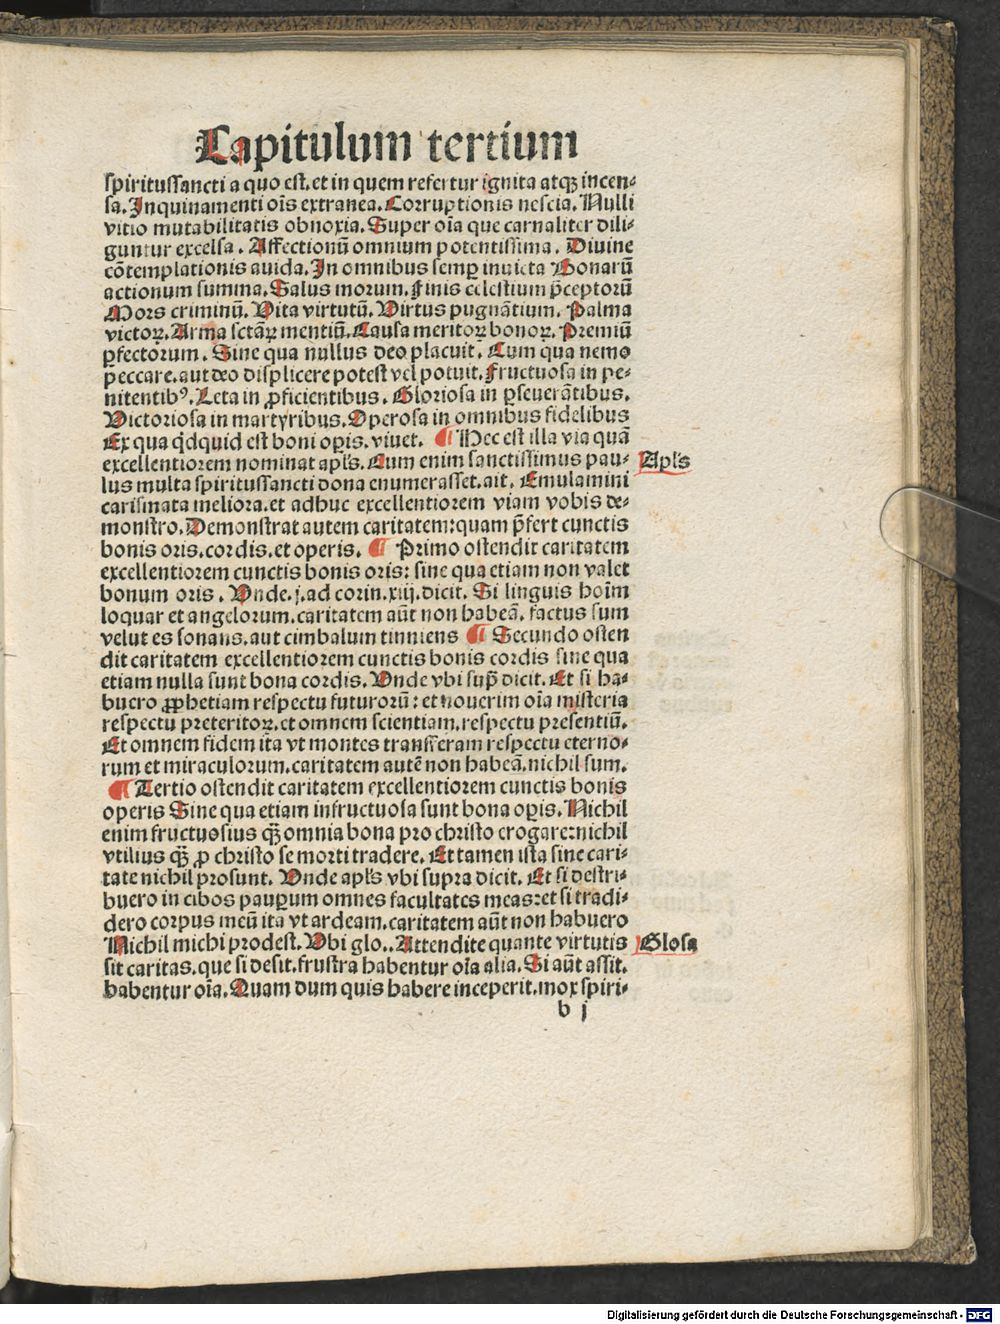 Capitulum tertium
spiritussancti a quo est. et in quem refertur ignita atqꝫ incen⸗
sa. Inquinamenti oĩs extranea. Corruptionis nescia. Nulli
vitio mutabilitatis obnoxia. Super oĩa que carnaliter dili⸗
guntur excelsa. Affectionũ omnium potentissima. Diuine
cõtemplationis auida. In omnibus semꝑ inuicta Bonarũ
actionum summa. Salus morum. Finis celestium p̃ceptorũ
Mors criminũ. Vita virtutũ. Virtus pugnãtium. Palma
victoꝝ. Arma sctãꝝ mentiũ. Causa meritoꝝ bonoꝝ. Premiũ
ꝑfectorum. Sine qua nullus deo placuit. Cum qua nemo
peccare. aut deo displicere potest vel potuit. Fructuosa in pe⸗
nitentibꝰ. Leta in ꝓficientibus. Gloriosa in ꝑseuerãtibus.
Victoriosa in martyribus. Operosa in omnibus fidelibus
Ex qua q̃dquid est boni oꝑis. viuet. ¶ Hec est illa via quã
excellentiorem nominat apl's. Cum enim sanctissimus pau⸗
Apl's
lus multa spiritussancti dona enumerasset. ait. Emulamini
carismata meliora. et adhuc excellentiorem viam vobis de⸗
monstro. Demonstrat autem caritatem: quam p̃fert cunctis
bonis oris. cordis. et operis. ¶ Primo ostendit caritatem
excellentiorem cunctis bonis oris: sine qua etiam non valet
bonum oris. Vnde. j. ad corin. xiij. dicit. Si linguis hoĩm
loquar et angelorum. caritatem aũt non habeã. factus sum
velut es sonans. aut cimbalum tinniens ¶ Secundo osten
dit caritatem excellentiorem cunctis bonis cordis sine qua
etiam nulla sunt bona cordis. Vnde vbi sup̃ dicit. Et si ha⸗
buero ꝓphetiam respectu futurorũ: et nouerim oĩa misteria
respectu preteritoꝝ. et omnem scientiam. respectu presentiũ.
Et omnem fidem ita vt montes transferam respectu eterno⸗
rum et miraculorum. caritatem autẽ non habeã. nichil sum.
¶ Tertio ostendit caritatem excellentiorem cunctis bonis
operis Sine qua etiam infructuosa sunt bona oꝑis. Nichil
enim fructuosius q̃ꝫ omnia bona pro christo erogare: nichil
vtilius q̃ꝫ ꝓ christo se morti tradere. Et tamen ista sine cari⸗
tate nichil prosunt. Vnde apl's vbi supra dicit. Et si destri⸗
buero in cibos pauꝑum omnes facultates meas: et si tradi⸗
dero corpus meũ ita vt ardeam. caritatem aũt non habuero
Nichil michi prodest. Vbi glo.. Attendite quante virtutis
Glosa
sit caritas. que si desit. frustra habentur oĩa alia. Si aũt assit.
habentur oĩa. Quam dum quis habere inceperit. mox spiri⸗
b j
Digitalisierung gefördert durch die Deutsche Forschungsgemeinschaft - DFG